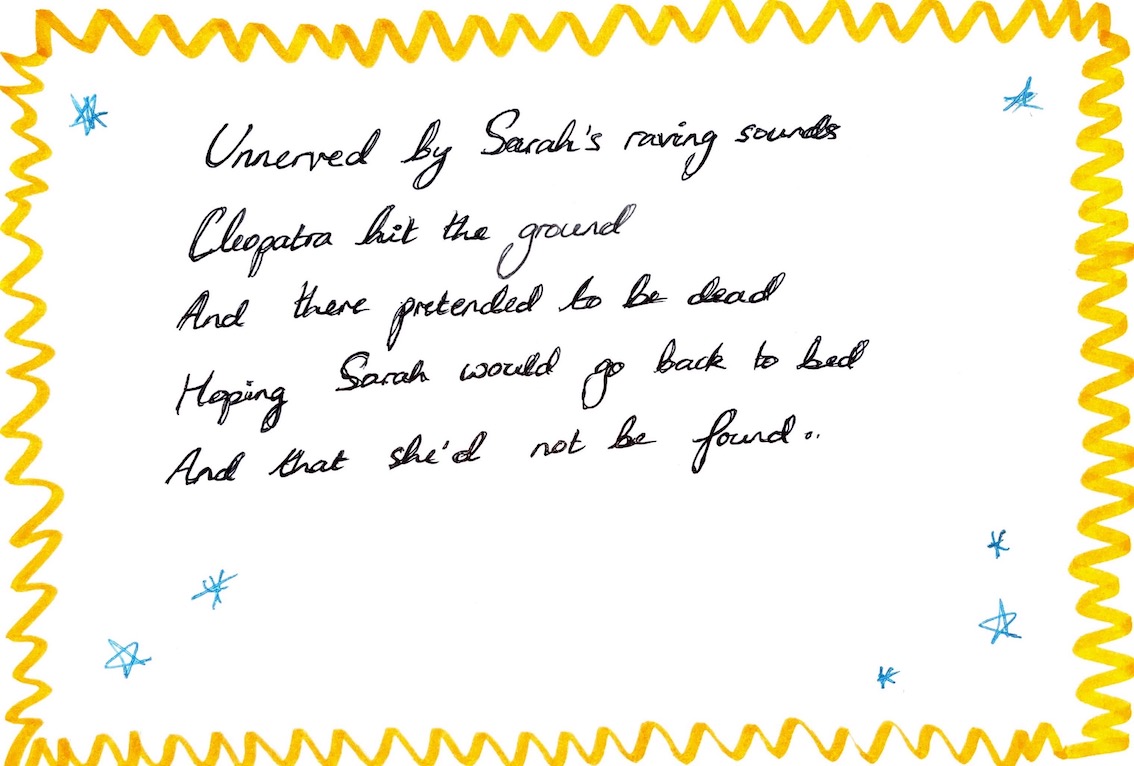 Unnerved by Sarah's raving sounds
Cleopatra hit the ground
And there pretended to be dead
Hoping Sarah would go back to bed
And that she'd not be found..